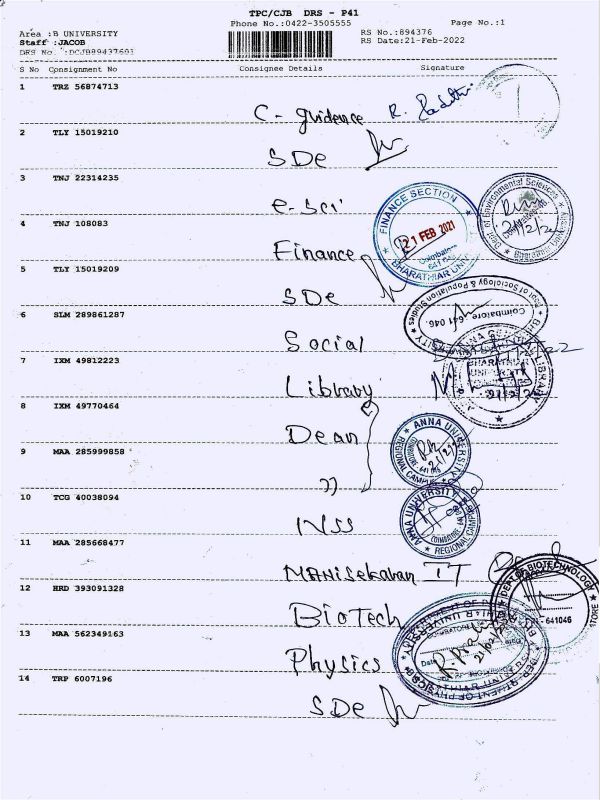 TPC/CJB DRS - P41
Phone No.:0422-3505555 Page No.:1
Area :B UNIVERSITY RS No.:894376
Staff :JACOB RS Date:21-Feb-2022
DRS No. :DCJB89437601
S No Consignment No Consignee Details Signature
1 TRZ 56874713
C - guidence R.
2 TLY 15019210
SDe
3 TNJ 22314235
e-sci
4 TNJ 108083
Finance
FINANCE SECTION
21 FEB 2021
Coimbatore
641 046
BHARATHIAR UNI
Dept. of Environmental Sciences
5 TLY 15019209
SDe
6 SLM 289861287
Social
Dept of Sociology & Population Studies
Coimbatore 641 046.
7 IXM 49812223
Library
ANNA LIBRARY
BHARATHIAR
UNIVERSITY
21/2/22
8 IXM 49770464
Dean
ANNA UNIVERSITY
REGIONAL CAMPUS
COIMBATORE - 641 046
9 MAA 285999858
"
10 TCG 40038094
NSS
ANNA UNIVERSITY
REGIONAL CAMPUS
COIMBATORE
11 MAA 285668477
MANisekaran IT
12 HRD 393091328
BioTech
DEPT. OF BIOTECHNOLOGY
STORE
-641046
13 MAA 562349163
Physics
DEPARTMENT OF PHYSICS
BHARATHIAR UNIVERSITY
Date
14 TRP 6007196
SDe